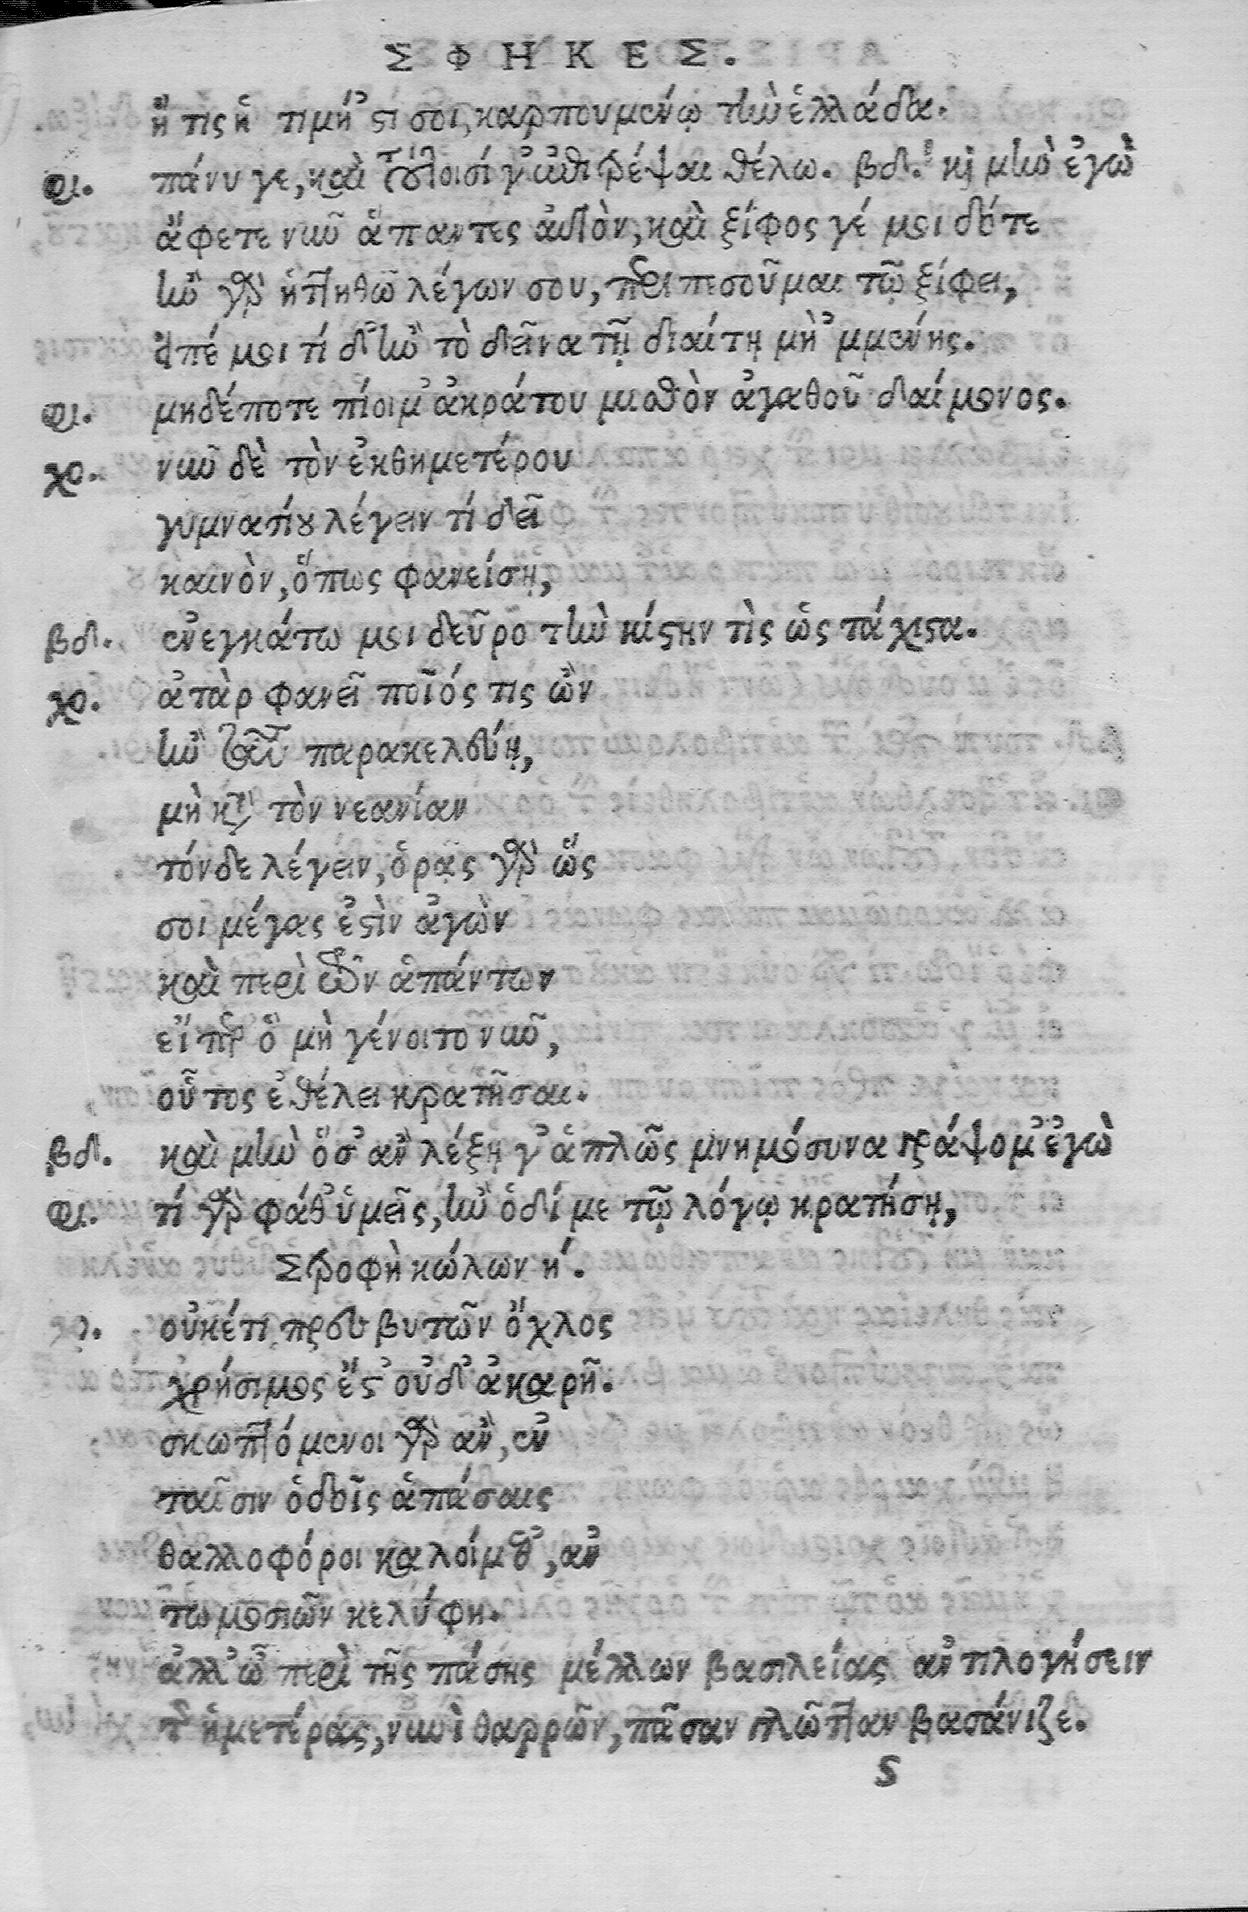 ΣΦΗΚΕΣ.
ἥ τις ἡ τιμή ᾽στί σοι, καρπουμένῳ τὴν ἑλλάδα.
φι. πάνυ γε, καὶ τούτοισί γ᾽ ἐπιτρέψαι θέλω. βδ. καὶ μὴν ἐγὼ
ἄφετε νῦν ἅπαντες αὐτὸν, καὶ ξίφος γέ μοι δότε
ἢν γὰρ ἡττηθῶ λέγων σου, περιπεσοῦμαι τῷ ξίφει,
εἰπέ μοι τί δ᾽ ἢν τὸ δεῖνα τῇ διαίτῃ μὴ ᾽μμένῃς.
φι. μηδέποτε πίοιμ᾽ ἀκράτου μισθὸν ἀγαθοῦ δαίμονος.
χο. νῦν δὲ τὸν ἐκθημετέρου
γυμνασίου λέγειν τί δεῖ
καινὸν, ὅπως φανείσῃ,
βδ. ἐνεγκάτω μοι δεῦρο τὴν κίστην τὶς ὡς τάχιστα.
χο. ἀτὰρ φανεῖ ποῖός τις ὢν
ἢν ταῦτα παρακελεύῃ,
μὴ κατὰ τὸν νεανίαν
τόνδε λέγειν, ὁρᾷς γὰρ ὥς
σοι μέγας ἐστὶν ἀγὼν
καὶ περὶ τῶν ἁπάντων
εἴπερ ὃ μὴ γένοιτο νῦν,
οὗτος ἐθέλει κρατῆσαι.
βδ. καὶ μὴν ὅσ᾽ ἂν λέξῃ γ᾽ ἁπλῶς μνημόσυνα γράψομ᾽ ἐγὼ
φι. τί γὰρ φάθ᾽ ὑμεῖς, ἢν ὁδί με τῷ λόγῳ κρατήσῃ,
Στροφὴ κώλων η΄.
χο. οὐκέτι πρεσβυτῶν ὄχλος
χρήσιμος ἔστ᾽ οὐδ᾽ ἀκαρῆ.
σκωπτόμενοι γὰρ ἂν, ἐν
ταῖσιν ὁδοῖς ἁπάσαις
θαλλοφόροι καλοίμεθ᾽, ἀν
τωμοσιῶν κελύφη.
ἀλλ᾽ ὦ περὶ τῆς πάσης μέλλων βασιλείας ἀντιλογήσειν
τῆς ἡμετέρας, νυνὶ θαρρῶν, πᾶσαν γλῶτταν βασάνιζε.
S